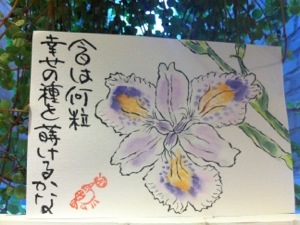 今日は何粒
幸せの種を蒔けるかな